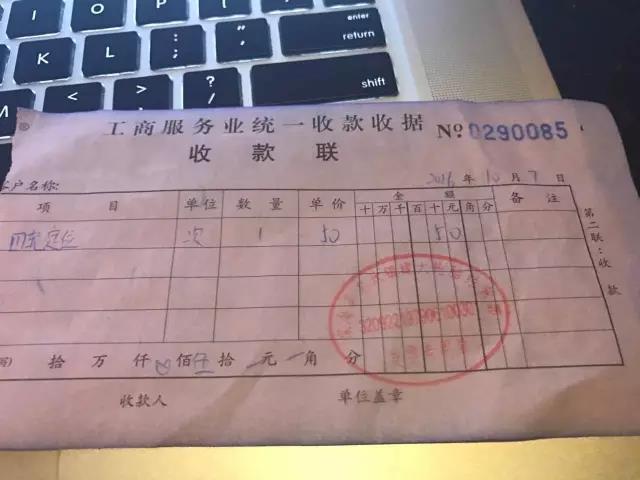 I O P { [ } ]
enter
return
K L : ; " '
< , > . ? /
shift
工商服务业统一收款收据 Nº 0290085
收款联
客户名称: 2016 年 10 月 7 日
项目 单位 数量 单价 金额 备注
十 万 千 百 十 元 角 分
定位 次 1 50 50
第二联:收款
拾 万 仟 佰 拾 元 角 分
收款人 单位盖章